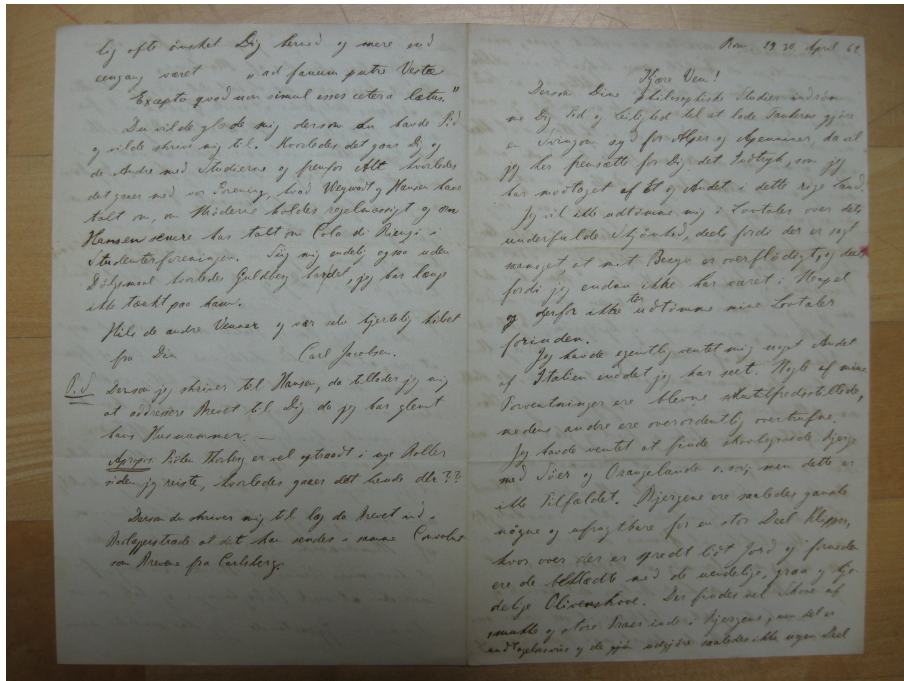 lig ofte önsket Dig herned og mere end
eengang været "ad fanum putre Vestæ
Excepto quod non simul esses cetera lætus."
Du vilde glæde mig dersom du havde Tid
og vilde skrive mig til. Hvorledes det gaar Dig og
de Andre med Studierne og fremfor Alt hvorledes
det gaaer med vor Forening, hvad og Hansen have
talt om, om Møderne holdes regelmæssigt og om
Hansen senere har talt om Cola di Rienzi i
Studenterforeningen. Siig mig endelig ogsaa uden
hvorledes Guldberg, jeg har længe
ikke tænkt paa ham.
Hils de andre Venner og vær selv hjertelig hilset
fra Din Carl Jacobsen.
P.S. Dersom jeg skriver til Hansen, da tillader jeg mig
at addressere Brevet til Dig da jeg har glemt
hans Huusnummer. —
Apropos er vel optraadt i nye Roller
siden jeg reiste, hvorledes gaaer det hende ??
Dersom du skriver mig til læg da Brevet ind i
at det kan sendes i samme
som Brevene fra Carlsberg.
Rom, 29 30 April 62
Kjære Ven!
Dersom Dine philosophiske Studier indrøm
me Dig Tid og Leilighed til at lade Tankerne gjøre
en Svingom syd for Alper og Apenniner, da vil
jeg her fremsætte for Dig det Indtryk, som jeg
har modtaget af Et og Andet i dette rige Land.
Jeg vil ikke udtömme mig i Lovtaler over dets
underfulde Skjönhed, deels fordi der er sagt
saameget, at mit Beggo er overflödigt, og deels
fordi jeg endnu ikke har været i Neapel
og derfor ikke ter udtömme mine Lovtaler
forinden.
Jeg havde egentlig ventet mig noget Andet
af Italien end det jeg har seet. Nogle af mine
Forventninger ere blevne skuffede,
medens andre ere overordentlig overtrufne.
Jeg havde ventet at finde skovbegroede Bjerge
med Söer og Orangelunde o.s.v; men dette er
ikke Tilfældet. Bjergene ere saaledes ganske
nögne og ufrugtbare for en stor Deel Klipper,
hvor over der er spredt lidt Jord og forneden
ere de beklædte med de uendelige, graa og kje-
delige Olivenskove. Der findes vel Skove af
smukke og store Træer inde i Bjergene, men det er
undtagelsesviis og de udgjöre saaledes ikke nogen Deel